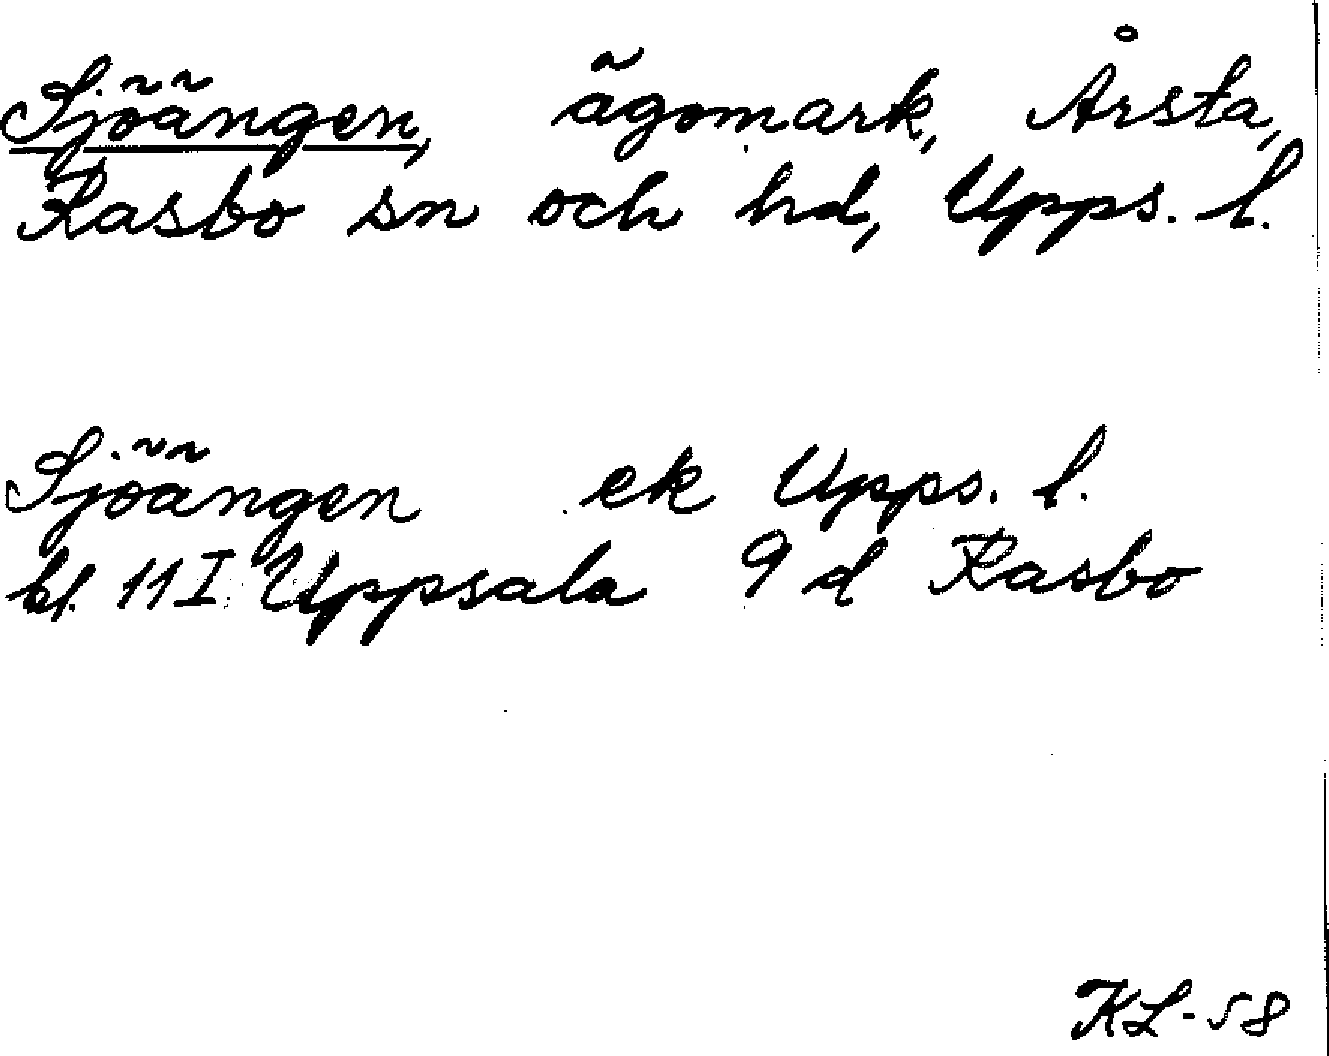 Sjöängen, ägomark, Årsta,
Rasbo sn och hd, Upps. l.
Sjöängen ek Upps. l.
bl. 11 I Uppsala 9 d Rasbo
KL-58